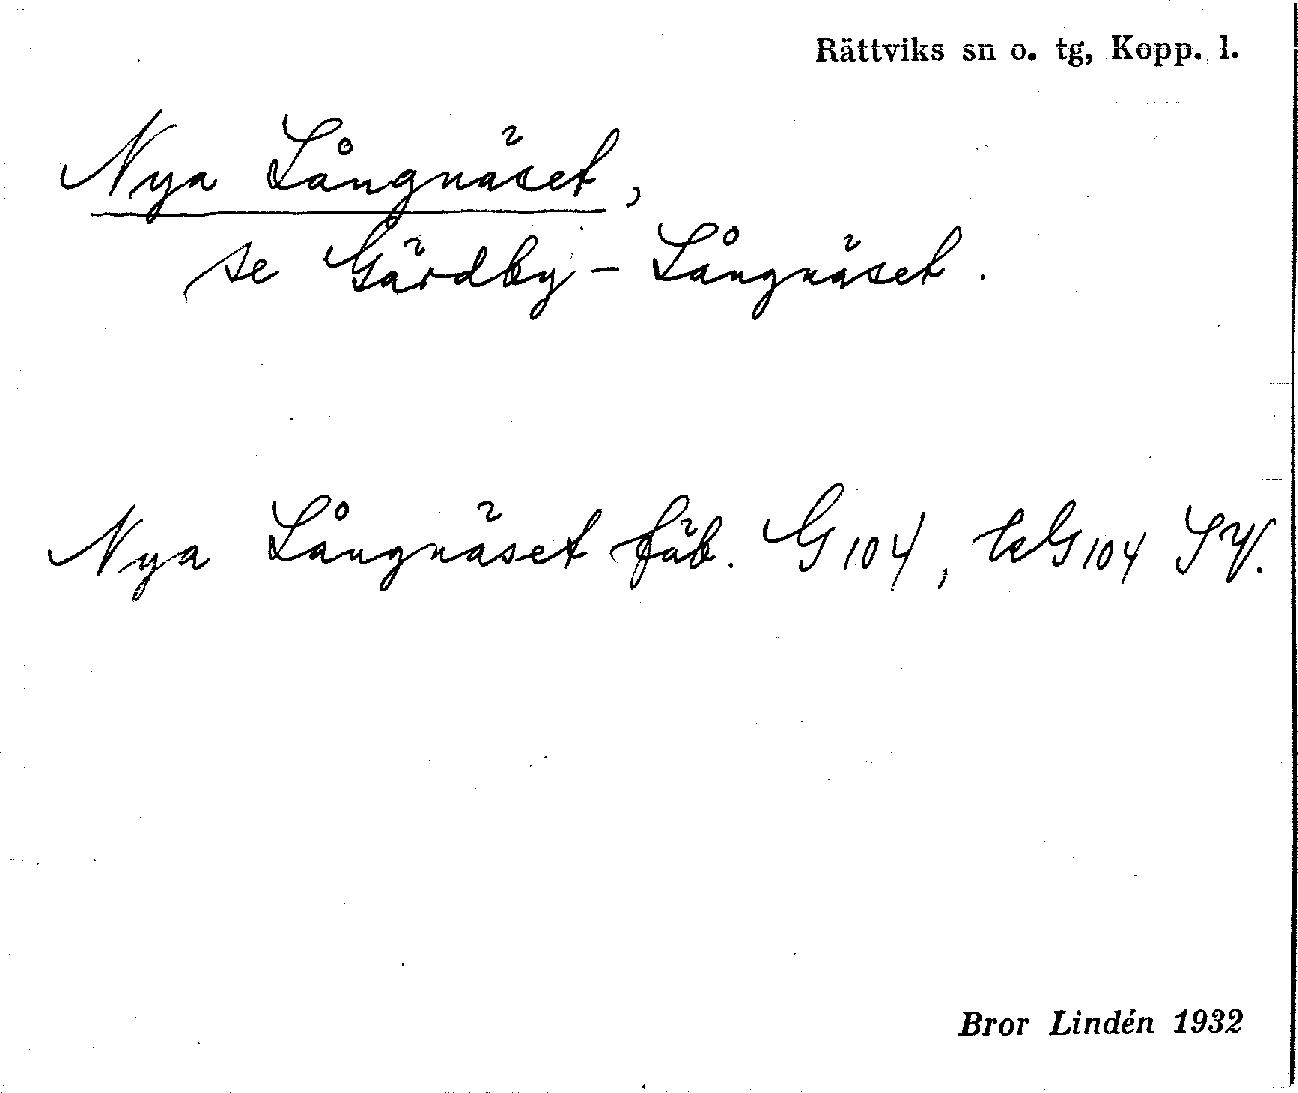 Rättviks sn o. tg, Kopp. l.
Nya Långnäset,
se Gärdby - Långnäset.
Nya Långnäset fäb. G 104, keG 104 SV.
Bror Lindén 1932